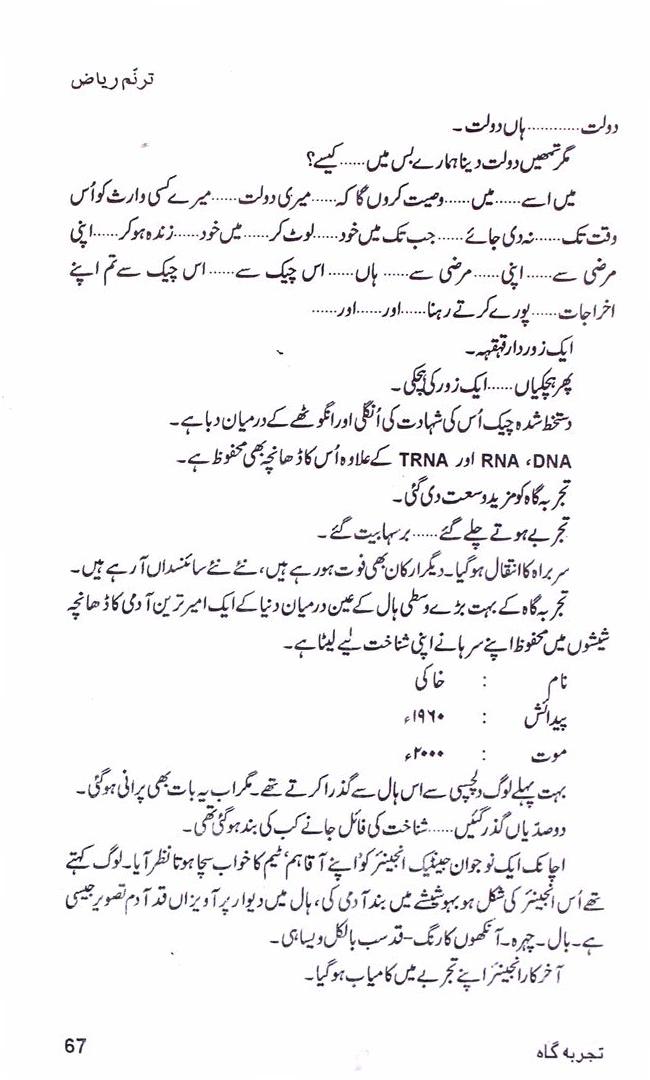 ترنّم ریاض
دولت............ہاں دولت۔
مگر تمھیں دولت دینا ہمارے بس میں......کیسے؟
میں اسے......میں......وصیت کروں گا کہ......میری دولت......میرے کسی وارث کو اُس
وقت تک......نہ دی جائے......جب تک میں خود......لوٹ کر......میں خود......زندہ ہو کر......اپنی
مرضی سے......اپنی......مرضی سے......ہاں......اس چیک سے......اس چیک سے تم اپنے
اخراجات......پورے کرتے رہنا......اور......اور......
ایک زوردار قہقہہ۔
پھر ہچکیاں......ایک زور کی ہچکی۔
دستخط شدہ چیک اُس کی شہادت کی اُنگلی اور انگوٹھے کے درمیان دبا ہے۔
RNA ،DNA اور TRNA کے علاوہ اُس کا ڈھانچہ بھی محفوظ ہے۔
تجربہ گاہ کو مزید وسعت دی گئی۔
تجربے ہوتے چلے گئے......برسہا بیت گئے۔
سربراہ کا انتقال ہو گیا۔ دیگر ارکان بھی فوت ہو رہے ہیں، نئے نئے سائنسداں آ رہے ہیں۔
تجربہ گاہ کے بہت بڑے وسطی ہال کے عین درمیان دنیا کے ایک امیر ترین آدمی کا ڈھانچہ
شیشوں میں محفوظ اپنے سرہانے اپنی شناخت لیے لیٹا ہے۔
نام : خاکی
پیدائش : ۱۹۶۰ء
موت : ۲۰۰۰ء
بہت پہلے لوگ دلچسپی سے اس ہال سے گذرا کرتے تھے۔ مگر اب یہ بات بھی پرانی ہو گئی۔
دو صدیاں گذر گئیں......شناخت کی فائل جانے کب کی بند ہو گئی تھی۔
اچانک ایک نوجوان جینیٹک انجینئر کو اپنے آقا ہم ٹیم کا خواب سچا ہوتا نظر آیا۔ لوگ کہتے
تھے اُس انجینئر کی شکل ہو بہو شیشے میں بند آدمی کی، ہال میں دیوار پر آویزاں قد آدم تصویر جیسی
ہے۔ بال۔ چہرہ۔ آنکھوں کا رنگ-قد سب بالکل ویسا ہی۔
آخر کار انجینئر اپنے تجربے میں کامیاب ہو گیا۔
تجربہ گاہ 67